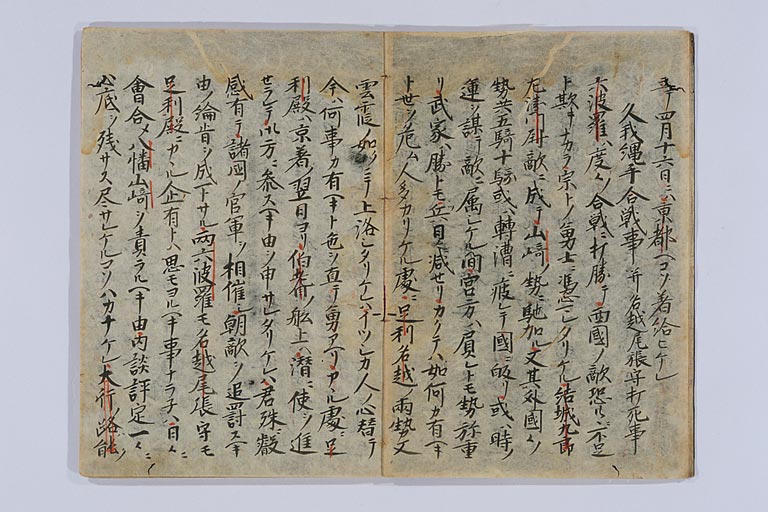 年四月十六日ニ京都ヘコソ着給ヒケレ
久我縄手合戦事 并名越尾張守打死事
六波羅ハ度々ノ合戦ニ打勝テ西國ノ敵恐ルヽニ不足
ト欺キナカラ宗トノ勇士ト憑レタリケル結城九郎
左衛門尉敵ニ成テ山崎ノ勢ニ馳加ル又其外國々ノ
勢共五騎十騎或ハ轉漕ニ疲レテ國ニ皈リ或ハ時ノ
運ヲ謀テ敵ニ属シケル間宮方ハ負レトモ勢弥重
リ武家ハ勝トモ兵日々減セリカクテハ如何カ有ヘキ
ト世ヲ危ム人多カリケル處ニ足利名越ノ両勢又
雲霞ノ如クニテ上洛シタリケレハイツシカ人ノ心替テ
今ハ何事カ有ヘキト色ヲ直テ勇アヘリカヽル處ニ足
利殿ハ京着ノ翌日ヨリ伯耆ノ舩上ヘ潜ニ使ヲ進
セラレテ御方ニ参スヘキ由ヲ申サレタリケレハ君殊ニ叡
感有テ諸國ノ官軍ヲ相催シ朝敵ヲ追罸スヘキ
由ノ綸旨ヲ成下サル両六波羅モ名越尾張守モ
足利殿ニカヽル企有トハ思モヨルヘキ事ナラネハ日々ニ
會合メ八幡山崎ヲ責ラルヘキ由内談評定一々ニ
心底ヲ残サス尽サレケルコソハカナケレ大行ノ路能ノ